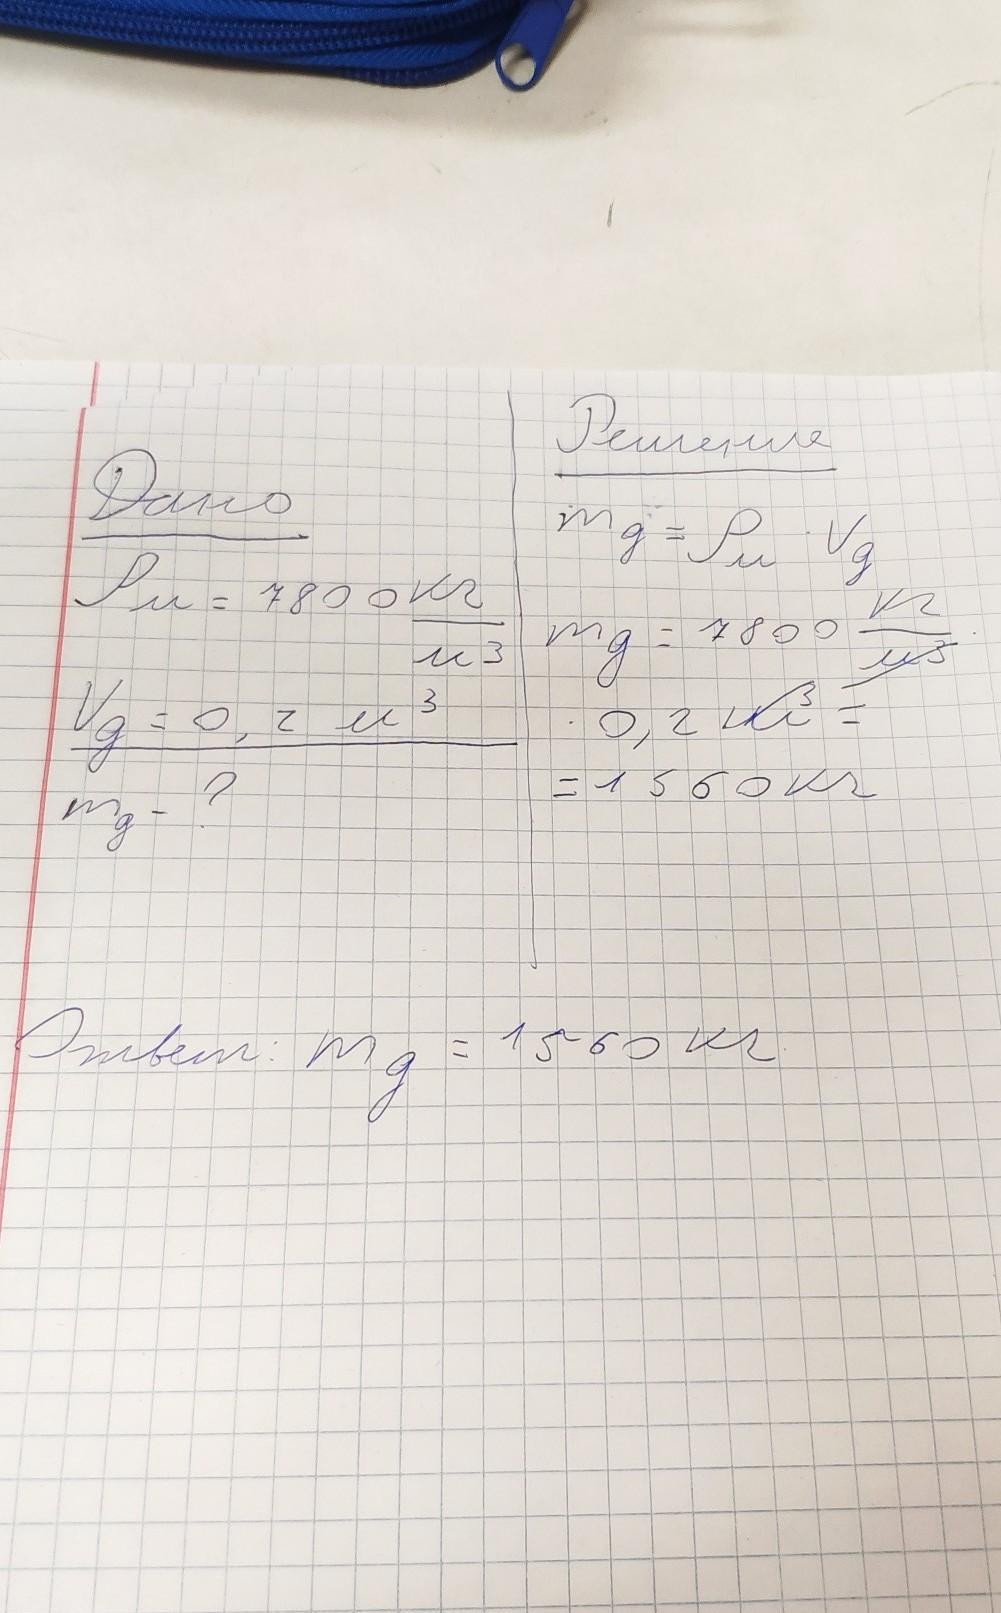 Дано
ρм = 7800 кг/м³
Vд = 0,2 м³
mд - ?
Решение
mд = ρм · Vд
mд = 7800 кг/м³ ·
· 0,2 м³ =
= 1560 кг
Ответ: mд = 1560 кг.